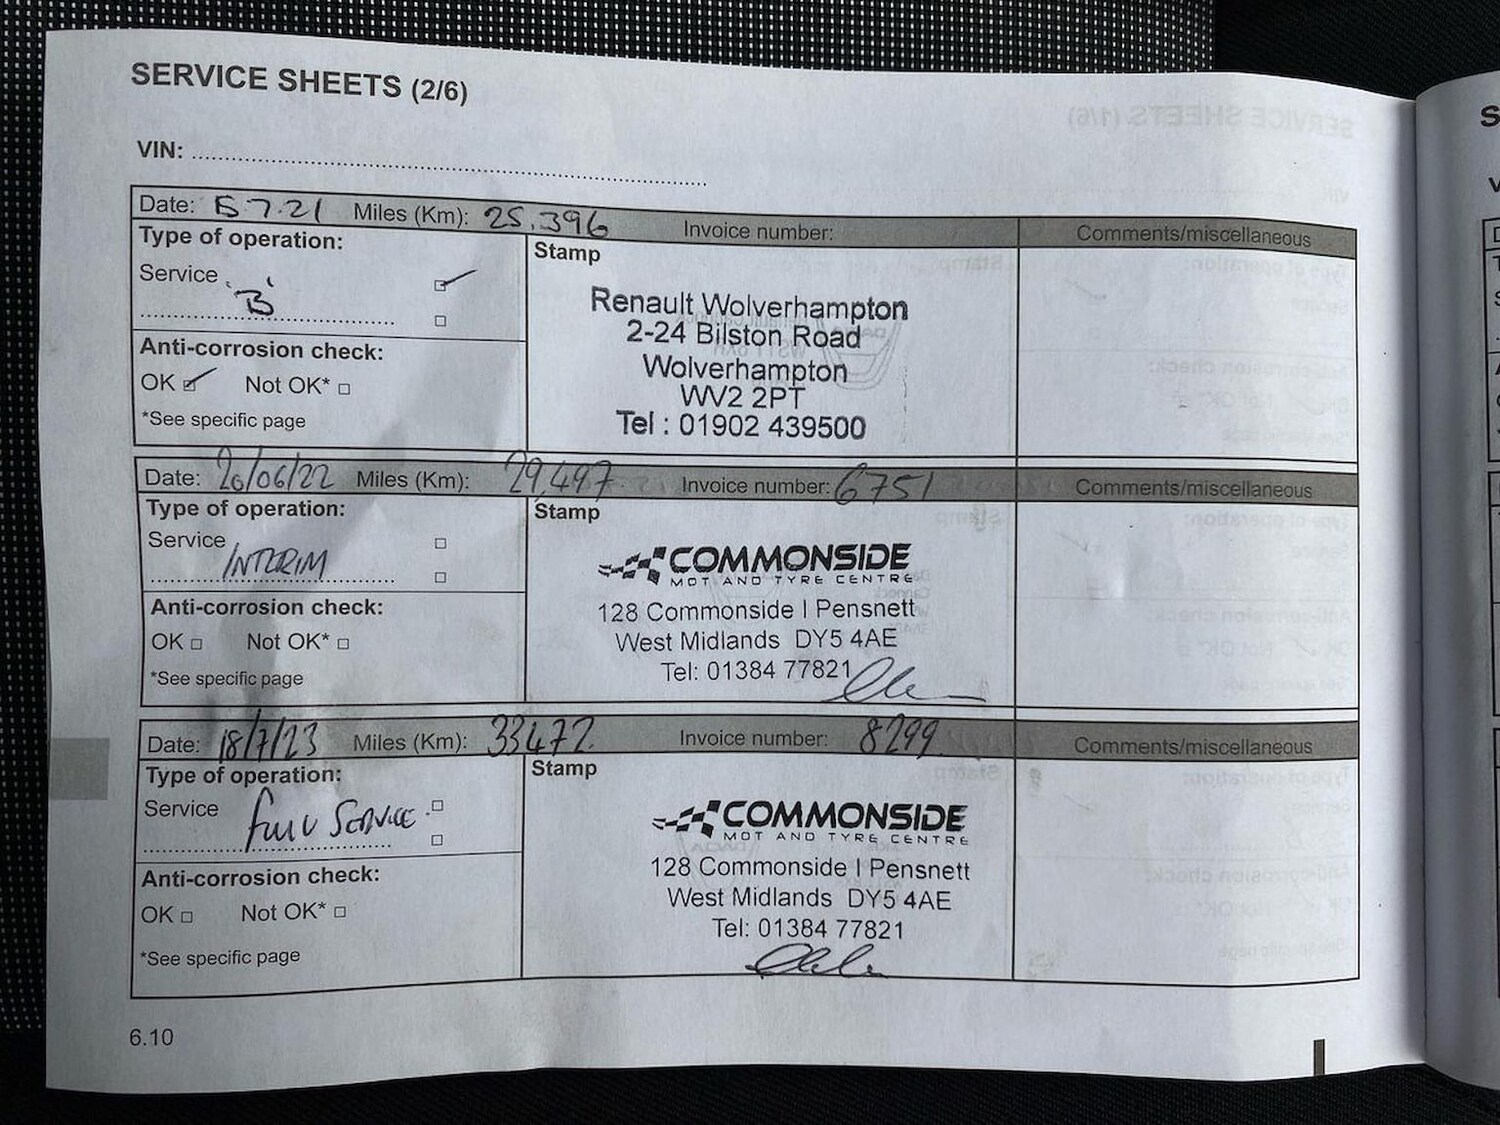 SERVICE SHEETS (2/6)
VIN: ........................................
Date: 15.7.21 Miles (Km): 25,396 Invoice number: Comments/miscellaneous
Type of operation:
Service 'B'
Stamp
Renault Wolverhampton
2-24 Bilston Road
Wolverhampton
WV2 2PT
Tel : 01902 439500
Anti-corrosion check:
OK Not OK*
*See specific page
Date: 20/06/22 Miles (Km): 29,497 Invoice number: 6751 Comments/miscellaneous
Type of operation:
Service INTERIM
Stamp
COMMONSIDE
MOT AND TYRE CENTRE
128 Commonside | Pensnett
West Midlands DY5 4AE
Tel: 01384 77821
Anti-corrosion check:
OK Not OK*
*See specific page
Date: 18/7/23 Miles (Km): 33472 Invoice number: 8299 Comments/miscellaneous
Type of operation:
Service Full SERVICE
Stamp
COMMONSIDE
MOT AND TYRE CENTRE
128 Commonside | Pensnett
West Midlands DY5 4AE
Tel: 01384 77821
Anti-corrosion check:
OK Not OK*
*See specific page
6.10